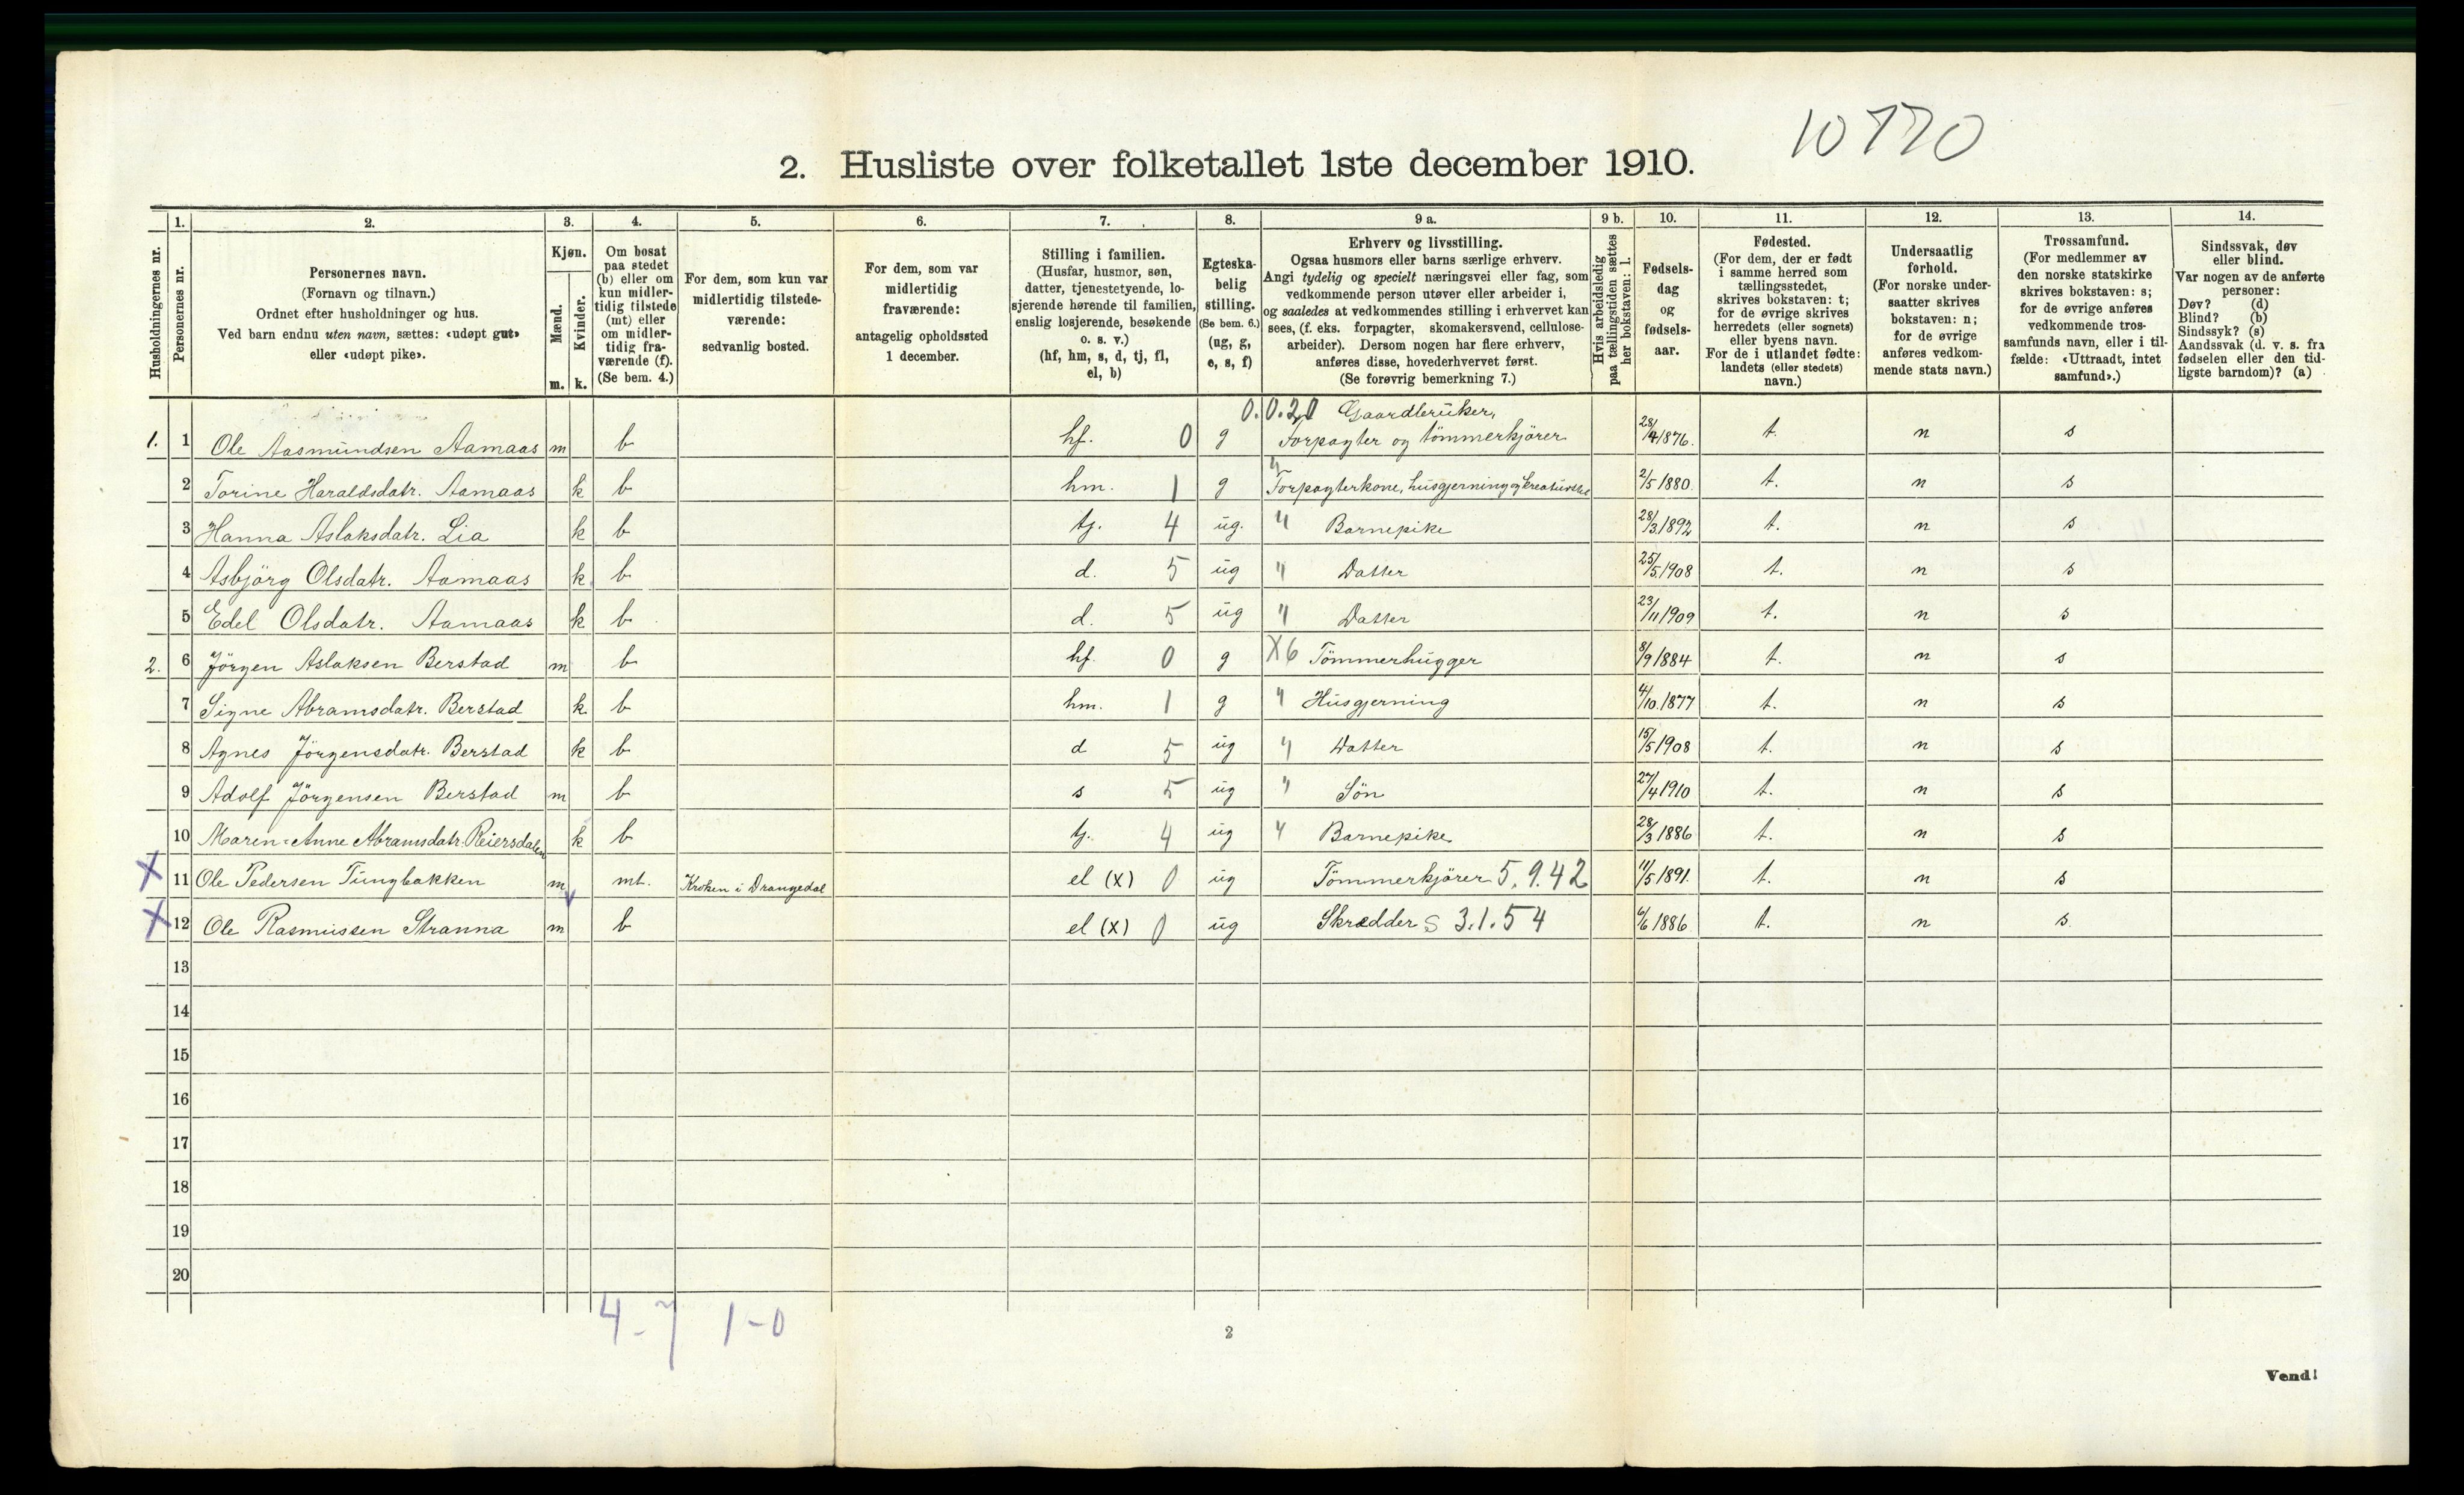 10770
2. Husliste over folketallet 1ste december 1910.
Husholdningernes nr.
1. Personernes nr.
2. Personernes navn.
(Fornavn og tilnavn.)
Ordnet efter husholdninger og hus.
Ved barn endnu uten navn, sættes: «udøpt gut»
eller «udøpt pike».
3. Kjøn.
Mænd. m.
Kvinder. k.
4. Om bosat
paa stedet
(b) eller om
kun midler-
tidig tilstede
(mt) eller
om midler-
tidig fra-
værende (f).
(Se bem. 4.)
5. For dem, som kun var
midlertidig tilstede-
værende:
sedvanlig bosted.
6. For dem, som var
midlertidig
fraværende:
antagelig opholdssted
1 december.
7. Stilling i familien.
(Husfar, husmor, søn,
datter, tjenestetyende, lo-
sjerende hørende til familien,
enslig losjerende, besøkende
o. s. v.)
(hf, hm, s, d, tj, fl,
el, b)
8. Egteska-
belig
stilling.
(Se bem. 6.)
(ug, g,
e, s, f)
9 a. Erhverv og livsstilling.
Ogsaa husmors eller barns særlige erhverv.
Angi tydelig og specielt næringsvei eller fag, som
vedkommende person utøver eller arbeider i,
og saaledes at vedkommendes stilling i erhvervet kan
sees, (f. eks. forpagter, skomakersvend, cellulose-
arbeider). Dersom nogen har flere erhverv,
anføres disse, hovederhvervet først.
(Se forøvrig bemerkning 7.)
9 b. Hvis arbeidsledig
paa tællingstiden sættes
her bokstaven: l.
10. Fødsels-
dag
og
fødsels-
aar.
11. Fødested.
(For dem, der er født
i samme herred som
tællingsstedet,
skrives bokstaven: t;
for de øvrige skrives
herredets (eller sognets)
eller byens navn.
For de i utlandet fødte:
landets (eller stedets)
navn.)
12. Undersaatlig
forhold.
(For norske under-
saatter skrives
bokstaven: n;
for de øvrige
anføres vedkom-
mende stats navn.)
13. Trossamfund.
(For medlemmer av
den norske statskirke
skrives bokstaven: s;
for de øvrige anføres
vedkommende tros-
samfunds navn, eller i til-
fælde: «Uttraadt, intet
samfund».)
14. Sindssvak, døv
eller blind.
Var nogen av de anførte
personer:
Døv? (d)
Blind? (b)
Sindssyk? (s)
Aandssvak (d. v. s. fra
fødselen eller den tid-
ligste barndom)? (a)
0.0.20 Gaardbruker,
1. 1 Ole Aasmundsen Aamaas m b hf. 0 g Forpagter og tömmerkjörer 28/4 1876. t. n s
2 Torine Haraldsdatr. Aamaas k b hm. 1 g " Forpagterkone, husgjerning og kreaturstel 2/5 1880. t. n s
3 Hanna Aslaksdatr. Lia k b tj. 4 ug. " Barnepike 28/3 1892 t. n s
4 Asbjörg Olsdatr. Aamaas k b d. 5 ug " Datter 25/5 1908 t. n s
5 Edel Olsdatr. Aamaas k b d. 5 ug " Datter 23/11 1909 t. n s
2. 6 Jörgen Aslaksen Berstad m b hf. 0 g X6 Tömmerhugger 8/9 1884 t. n s
7 Signe Abramsdatr. Berstad k b hm. 1 g " Husgjerning 4/10 1877 t. n s
8 Agnes Jörgensdatr. Berstad k b d 5 ug " Datter 15/5 1908 t. n s
9 Adolf Jörgensen Berstad m b s 5 ug " Sön 27/4 1910 t. n s
10 Maren-Anne Abramsdatr. Reiersdalen k b tj. 4 ug " Barnepike 28/3 1886 t. n s
X 11 Ole Pedersen Tungbakken m mt. Kroken i Drangedal el (x) 0 ug Tömmerkjörer 5.9.42 11/5 1891. t. n s
X 12 Ole Rasmussen Stranna m b el (x) 0 ug Skrædder S 3.1.54 6/6 1886 t. n s.
13
14
15
16
17
18
19
20
4-7 1-0
2
Vend!